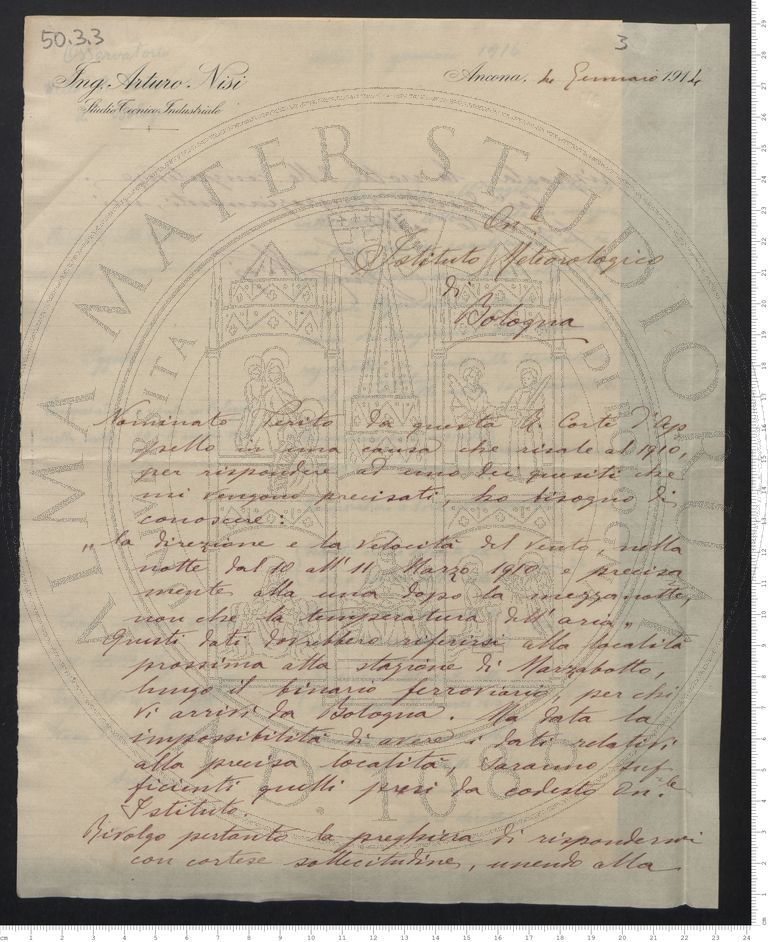 50.3.3
3
Osservatorio
Ing. Arturo Nisi
Studio Tecnico Industriale
Ancona, 4 Gennaio 1914
On.le
Istituto Meteorologico
di
Bologna
Nominato Perito da questa R. Corte d'Ap
pello in una causa che risale al 1910,
per rispondere ad uno dei quesiti che
mi vengono precisati, ho bisogno di
conoscere:
„la direzione e la velocità del vento, nella
notte dal 10 all'11 Marzo 1910 e precisa
mente alla una dopo la mezzanotte,
non che la temperatura dell'aria„
Questi dati dovrebbero riferirsi alla località
prossima alla stazione di Marzabotto,
lungo il binario ferroviario, per chi
vi arrivi da Bologna. Ma data la
impossibilità di avere i dati relativi
alla precisa località, saranno suf
ficienti quelli presi da codesto On.le
Istituto.
Rivolgo pertanto la preghiera di rispondermi
con cortese sollecitudine, unendo alla
ALMA MATER STUDIORUM
A.D. 1088